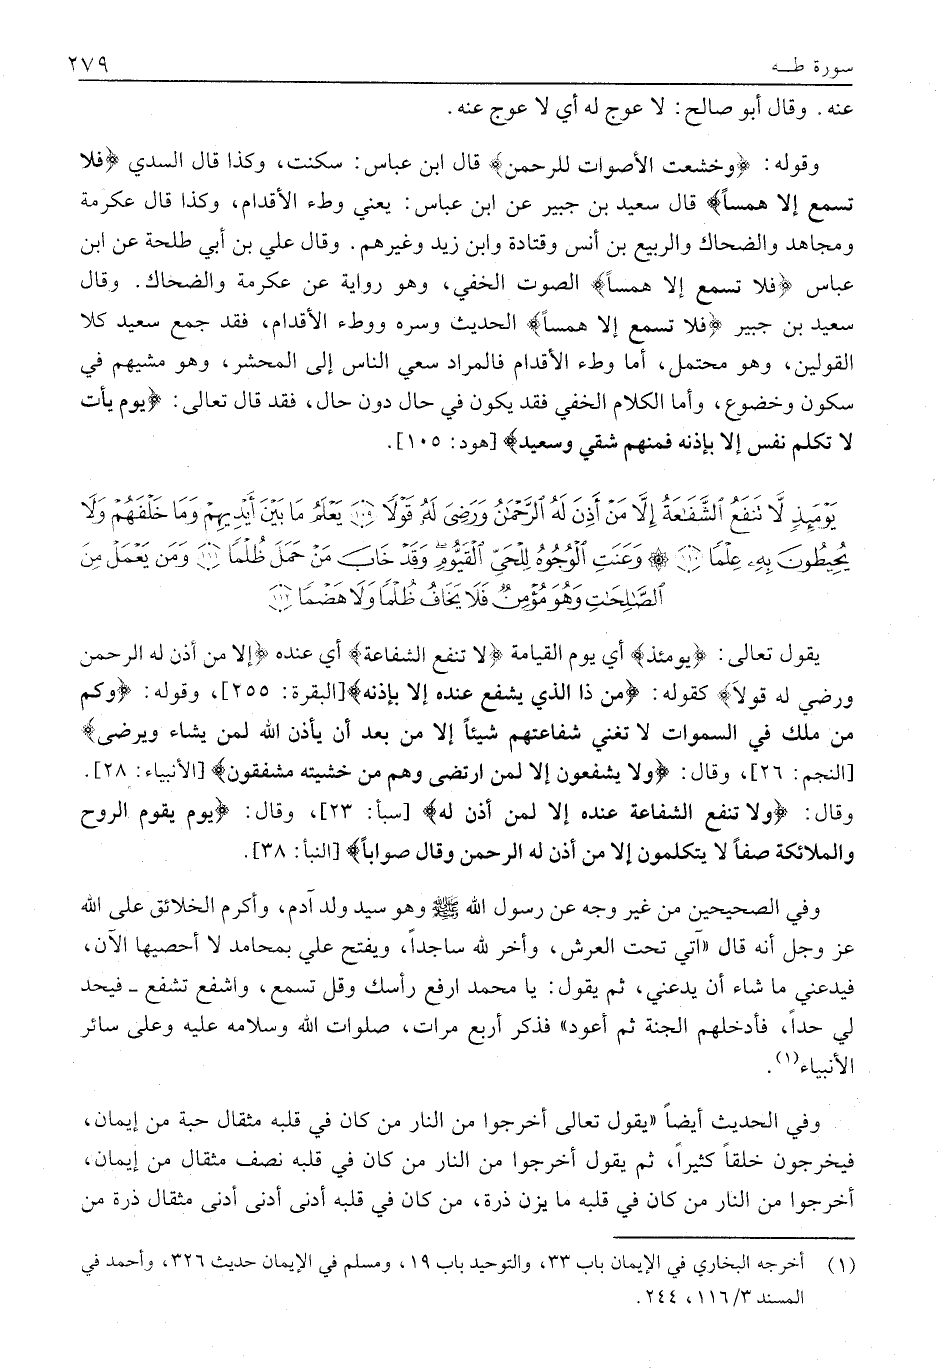 سورة طـــه ٢٧٩
عنه. وقال أبو صالح: لا عوج له أي لا عوج عنه.
وقوله: ﴿وخشعت الأصوات للرحمن﴾ قال ابن عباس: سكنت، وكذا قال السدي ﴿فلا
تسمع إلا همساً﴾ قال سعيد بن جبير عن ابن عباس: يعني وطء الأقدام، وكذا قال عكرمة
ومجاهد والضحاك والربيع بن أنس وقتادة وابن زيد وغيرهم. وقال علي بن أبي طلحة عن ابن
عباس ﴿فلا تسمع إلا همساً﴾ الصوت الخفي، وهو رواية عن عكرمة والضحاك. وقال
سعيد بن جبير ﴿فلا تسمع إلا همساً﴾ الحديث وسره ووطء الأقدام، فقد جمع سعيد كلا
القولين، وهو محتمل، أما وطء الأقدام فالمراد سعي الناس إلى المحشر، وهو مشيهم في
سكون وخضوع، وأما الكلام الخفي فقد يكون في حال دون حال، فقد قال تعالى: ﴿يوم يأت
لا تكلم نفس إلا بإذنه فمنهم شقي وسعيد﴾ [هود: ١٠٥].
يَوْمَئِذٍ لَّا تَنفَعُ ٱلشَّفَٰعَةُ إِلَّا مَنْ أَذِنَ لَهُ ٱلرَّحْمَٰنُ وَرَضِىَ لَهُۥ قَوْلًا ﴿١٠٩﴾ يَعْلَمُ مَا بَيْنَ أَيْدِيهِمْ وَمَا خَلْفَهُمْ وَلَا
يُحِيطُونَ بِهِۦ عِلْمًا ﴿١١٠﴾ ۞ وَعَنَتِ ٱلْوُجُوهُ لِلْحَىِّ ٱلْقَيُّومِ ۖ وَقَدْ خَابَ مَنْ حَمَلَ ظُلْمًا ﴿١١١﴾ وَمَن يَعْمَلْ مِنَ
ٱلصَّٰلِحَٰتِ وَهُوَ مُؤْمِنٌ فَلَا يَخَافُ ظُلْمًا وَلَا هَضْمًا ﴿١١٢﴾
يقول تعالى: ﴿يومئذ﴾ أي يوم القيامة ﴿لا تنفع الشفاعة﴾ أي عنده ﴿إلا من أذن له الرحمن
ورضي له قولاً﴾ كقوله: ﴿من ذا الذي يشفع عنده إلا بإذنه﴾[البقرة: ٢٥٥]، وقوله: ﴿وكم
من ملك في السموات لا تغني شفاعتهم شيئاً إلا من بعد أن يأذن الله لمن يشاء ويرضى﴾
[النجم: ٢٦]، وقال: ﴿ولا يشفعون إلا لمن ارتضى وهم من خشيته مشفقون﴾ [الأنبياء: ٢٨].
وقال: ﴿ولا تنفع الشفاعة عنده إلا لمن أذن له﴾ [سبأ: ٢٣]، وقال: ﴿يوم يقوم الروح
والملائكة صفاً لا يتكلمون إلا من أذن له الرحمن وقال صواباً﴾ [النبأ: ٣٨].
وفي الصحيحين من غير وجه عن رسول الله ﷺ وهو سيد ولد آدم، وأكرم الخلائق على الله
عز وجل أنه قال «آتي تحت العرش، وأخر لله ساجداً، ويفتح علي بمحامد لا أحصيها الآن،
فيدعني ما شاء أن يدعني، ثم يقول: يا محمد ارفع رأسك وقل تسمع، واشفع تشفع ـ فيحد
لي حداً، فأدخلهم الجنة ثم أعود» فذكر أربع مرات، صلوات الله وسلامه عليه وعلى سائر
الأنبياء(١).
وفي الحديث أيضاً «يقول تعالى أخرجوا من النار من كان في قلبه مثقال حبة من إيمان،
فيخرجون خلقاً كثيراً، ثم يقول أخرجوا من النار من كان في قلبه نصف مثقال من إيمان،
أخرجوا من النار من كان في قلبه ما يزن ذرة، من كان في قلبه أدنى أدنى أدنى مثقال ذرة من
(١) أخرجه البخاري في الإيمان باب ٣٣، والتوحيد باب ١٩، ومسلم في الإيمان حديث ٣٢٦، وأحمد في
المسند ٣/١١٦، ٢٤٤.